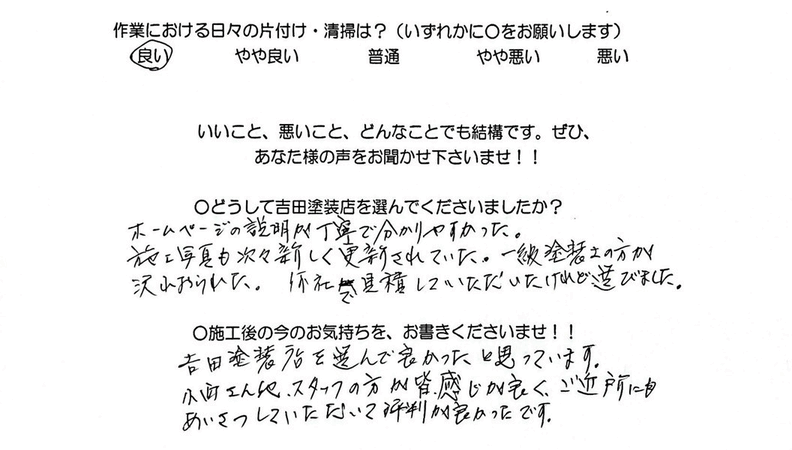 作業における日々の片付け・清掃は？（いずれかに〇をお願いします）
良い　やや良い　普通　やや悪い　悪い
いいこと、悪いこと、どんなことでも結構です。ぜひ、
あなた様の声をお聞かせ下さいませ！！
〇どうして吉田塗装店を選んでくださいましたか？
ホームページの説明が丁寧で分かりやすかった。
施工写真も次々新しく更新されていた。一級塗装士の方が
沢山おられた。 他社で見積していただいたけれど選びました。
〇施工後の今のお気持ちを、お書きくださいませ！！
吉田塗装店を選んで良かったと思っています。
さん他、スタッフの方が皆感じが良く、ご近所にも
あいさつしていただいて評判が良かったです。